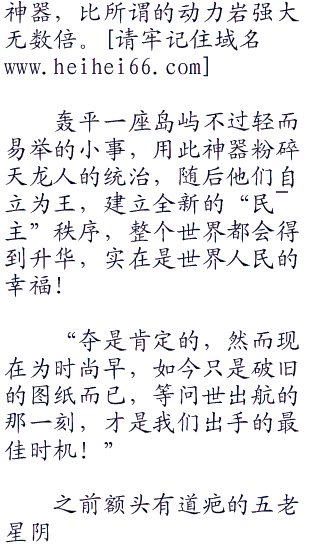 神器，比所谓的动力岩强大
无数倍。[请牢记住域名
www.heihei66.com]
轰平一座岛屿不过轻而
易举的小事，用此神器粉碎
天龙人的统治，随后他们自
立为王，建立全新的“民
主”秩序，整个世界都会得
到升华，实在是世界人民的
幸福！
“夺是肯定的，然而现
在为时尚早，如今只是破旧
的图纸而已，等问世出航的
那一刻，才是我们出手的最
佳时机！”
之前额头有道疤的五老
星阴